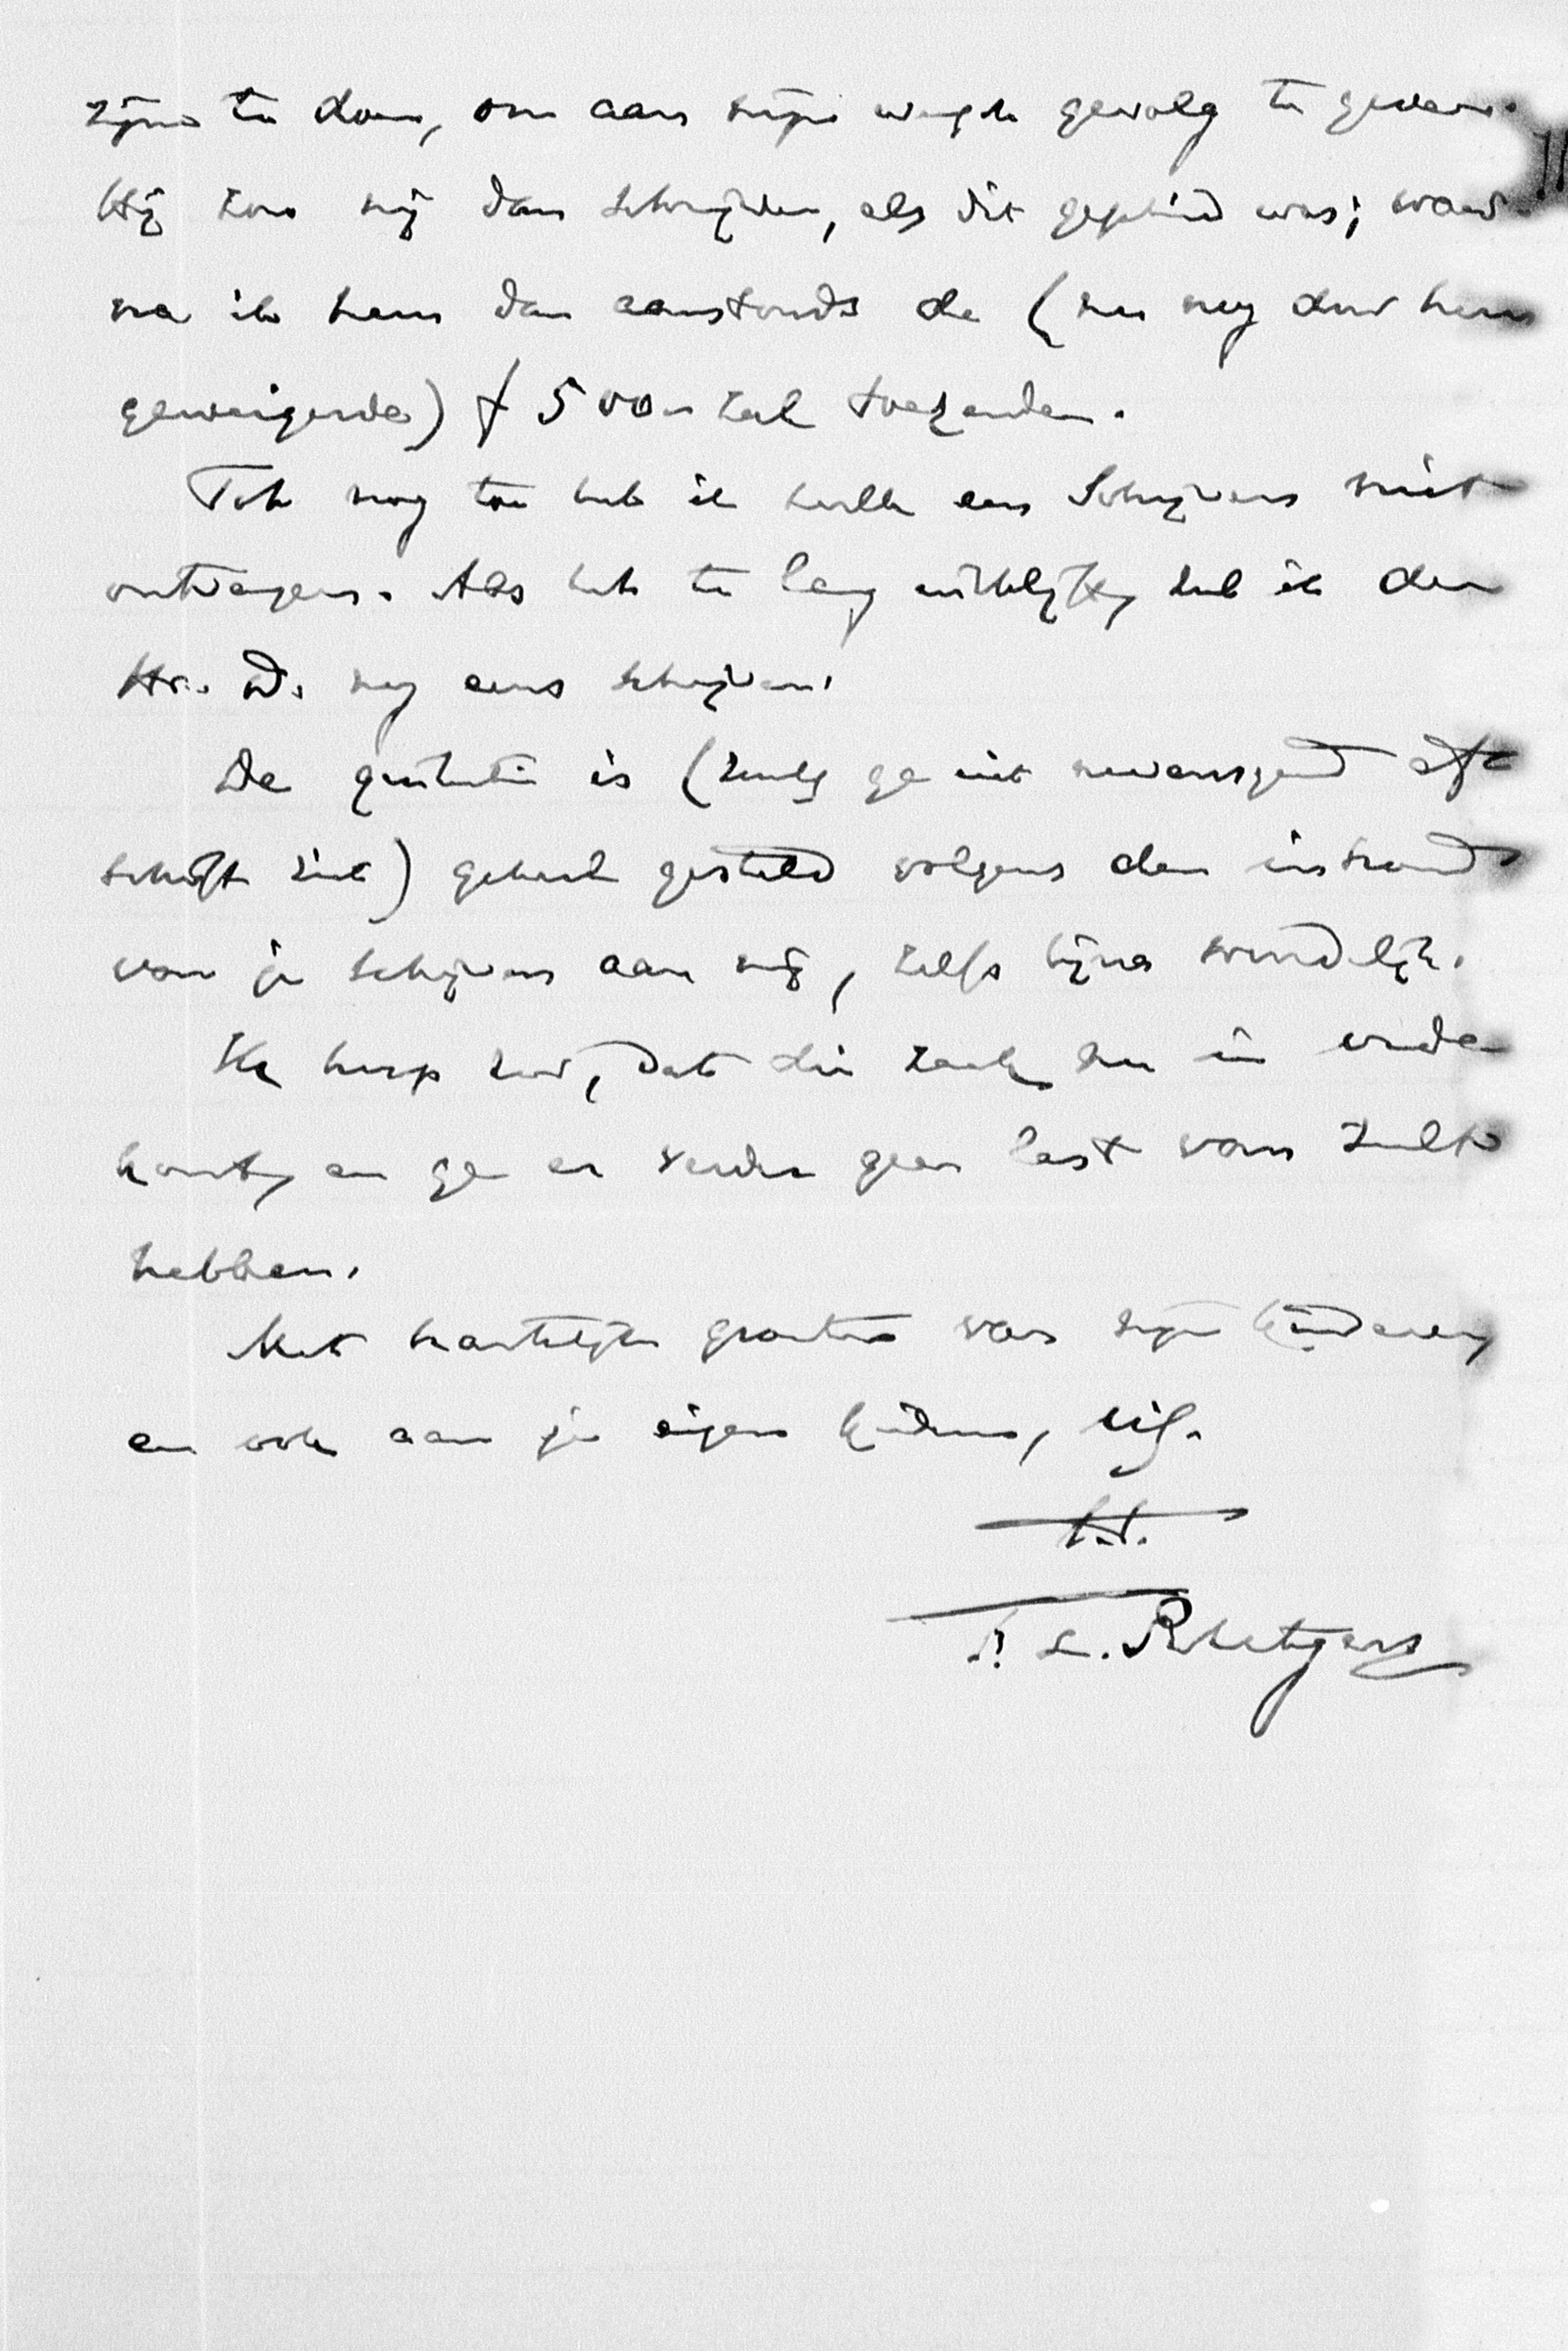 zijne te doen, om aan mijn wensch gevolg te geven.
Hij zou mij dan schrijven, als dit geschied was; waar-
na ik hem dan aanstonds de (nu nog door hem
geweigerde) f 500.- zal toezenden.
Tot nog toe heb ik zulk een Schrijven niet
ontvangen. Als het te lang uitblijft, zal ik den
Hr. D. nog eens schrijven.
De quitantie is (zooals ge uit nevensgaand af-
schrift ziet) geheel gesteld volgens den inhoud
van je schrijven aan mij, zelfs bijna woordelijk.
Ik hoop zeer, dat die zaak nu in orde
komt, en ge er verder geen last van zult
hebben.
Met hartelijke groeten van mijne kinderen,
en ook aan je eigen kinderen, als
t.t.
F. L. Rutgers